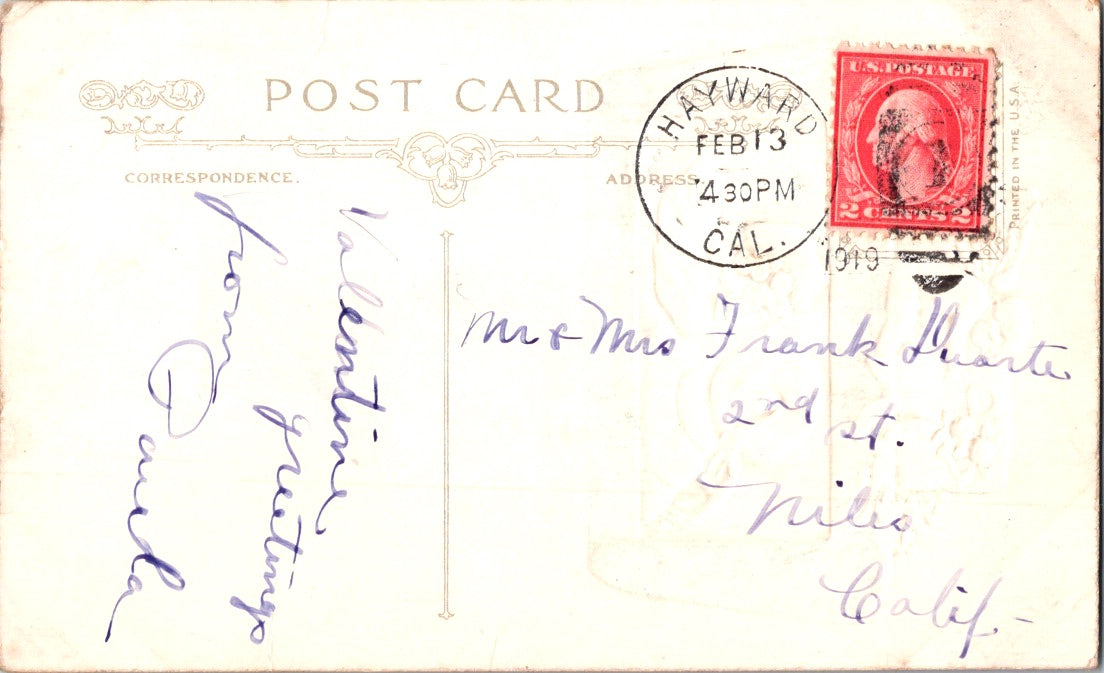 POST CARD
CORRESPONDENCE.
ADDRESS
HAYWARD
FEB 13
4 30 PM
CAL.
1919
U.S. POSTAGE
2 CENTS 2
PRINTED IN THE U.S.A.
Valentine
greetings
from
Mr & Mrs Frank Duarte
2nd st.
Niles
Calif.